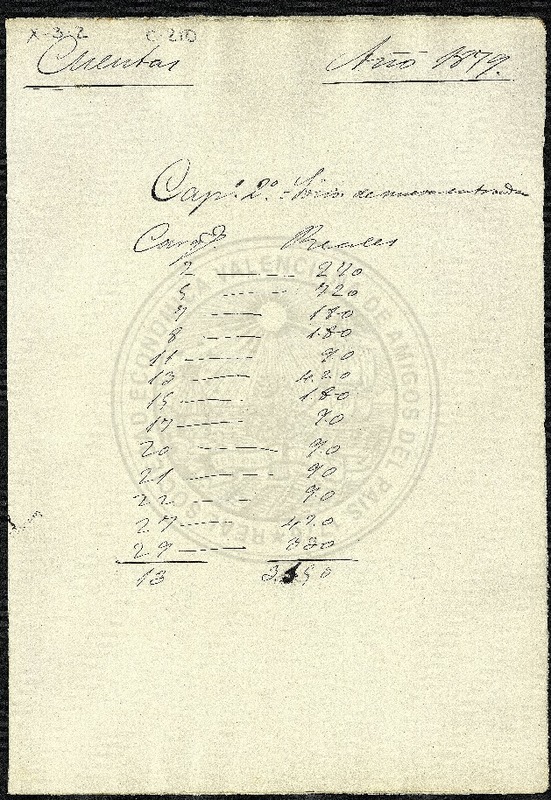 X-3-2 C-210
Cuentas Año 1879.
Cap.º 2.º
Carg.s Reales
2 240
5 720
7 180
8 180
11 90
13 420
15 180
17 90
20 90
21 90
22 90
27
29
13
REAL SOCIEDAD ECONOMICA VALENCIANA DE AMIGOS DEL PAIS